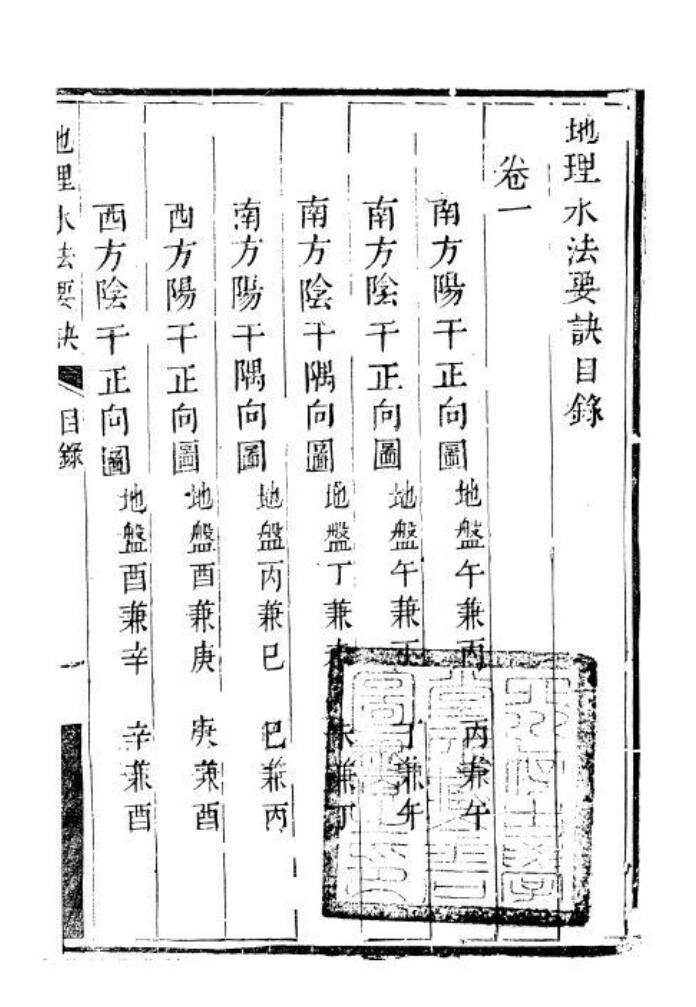 地理水法要訣目錄
卷一
南方陽干正向圖 地盤午兼丙 丙兼午
南方陰干正向圖 地盤午兼丁 丁兼午
南方陰干隅向圖 地盤丁兼未 未兼丁
南方陽干隅向圖 地盤丙兼巳 巳兼丙
西方陽干正向圖 地盤酉兼庚 庚兼酉
西方陰干正向圖 地盤酉兼辛 辛兼酉
地理水法要訣 目錄 一